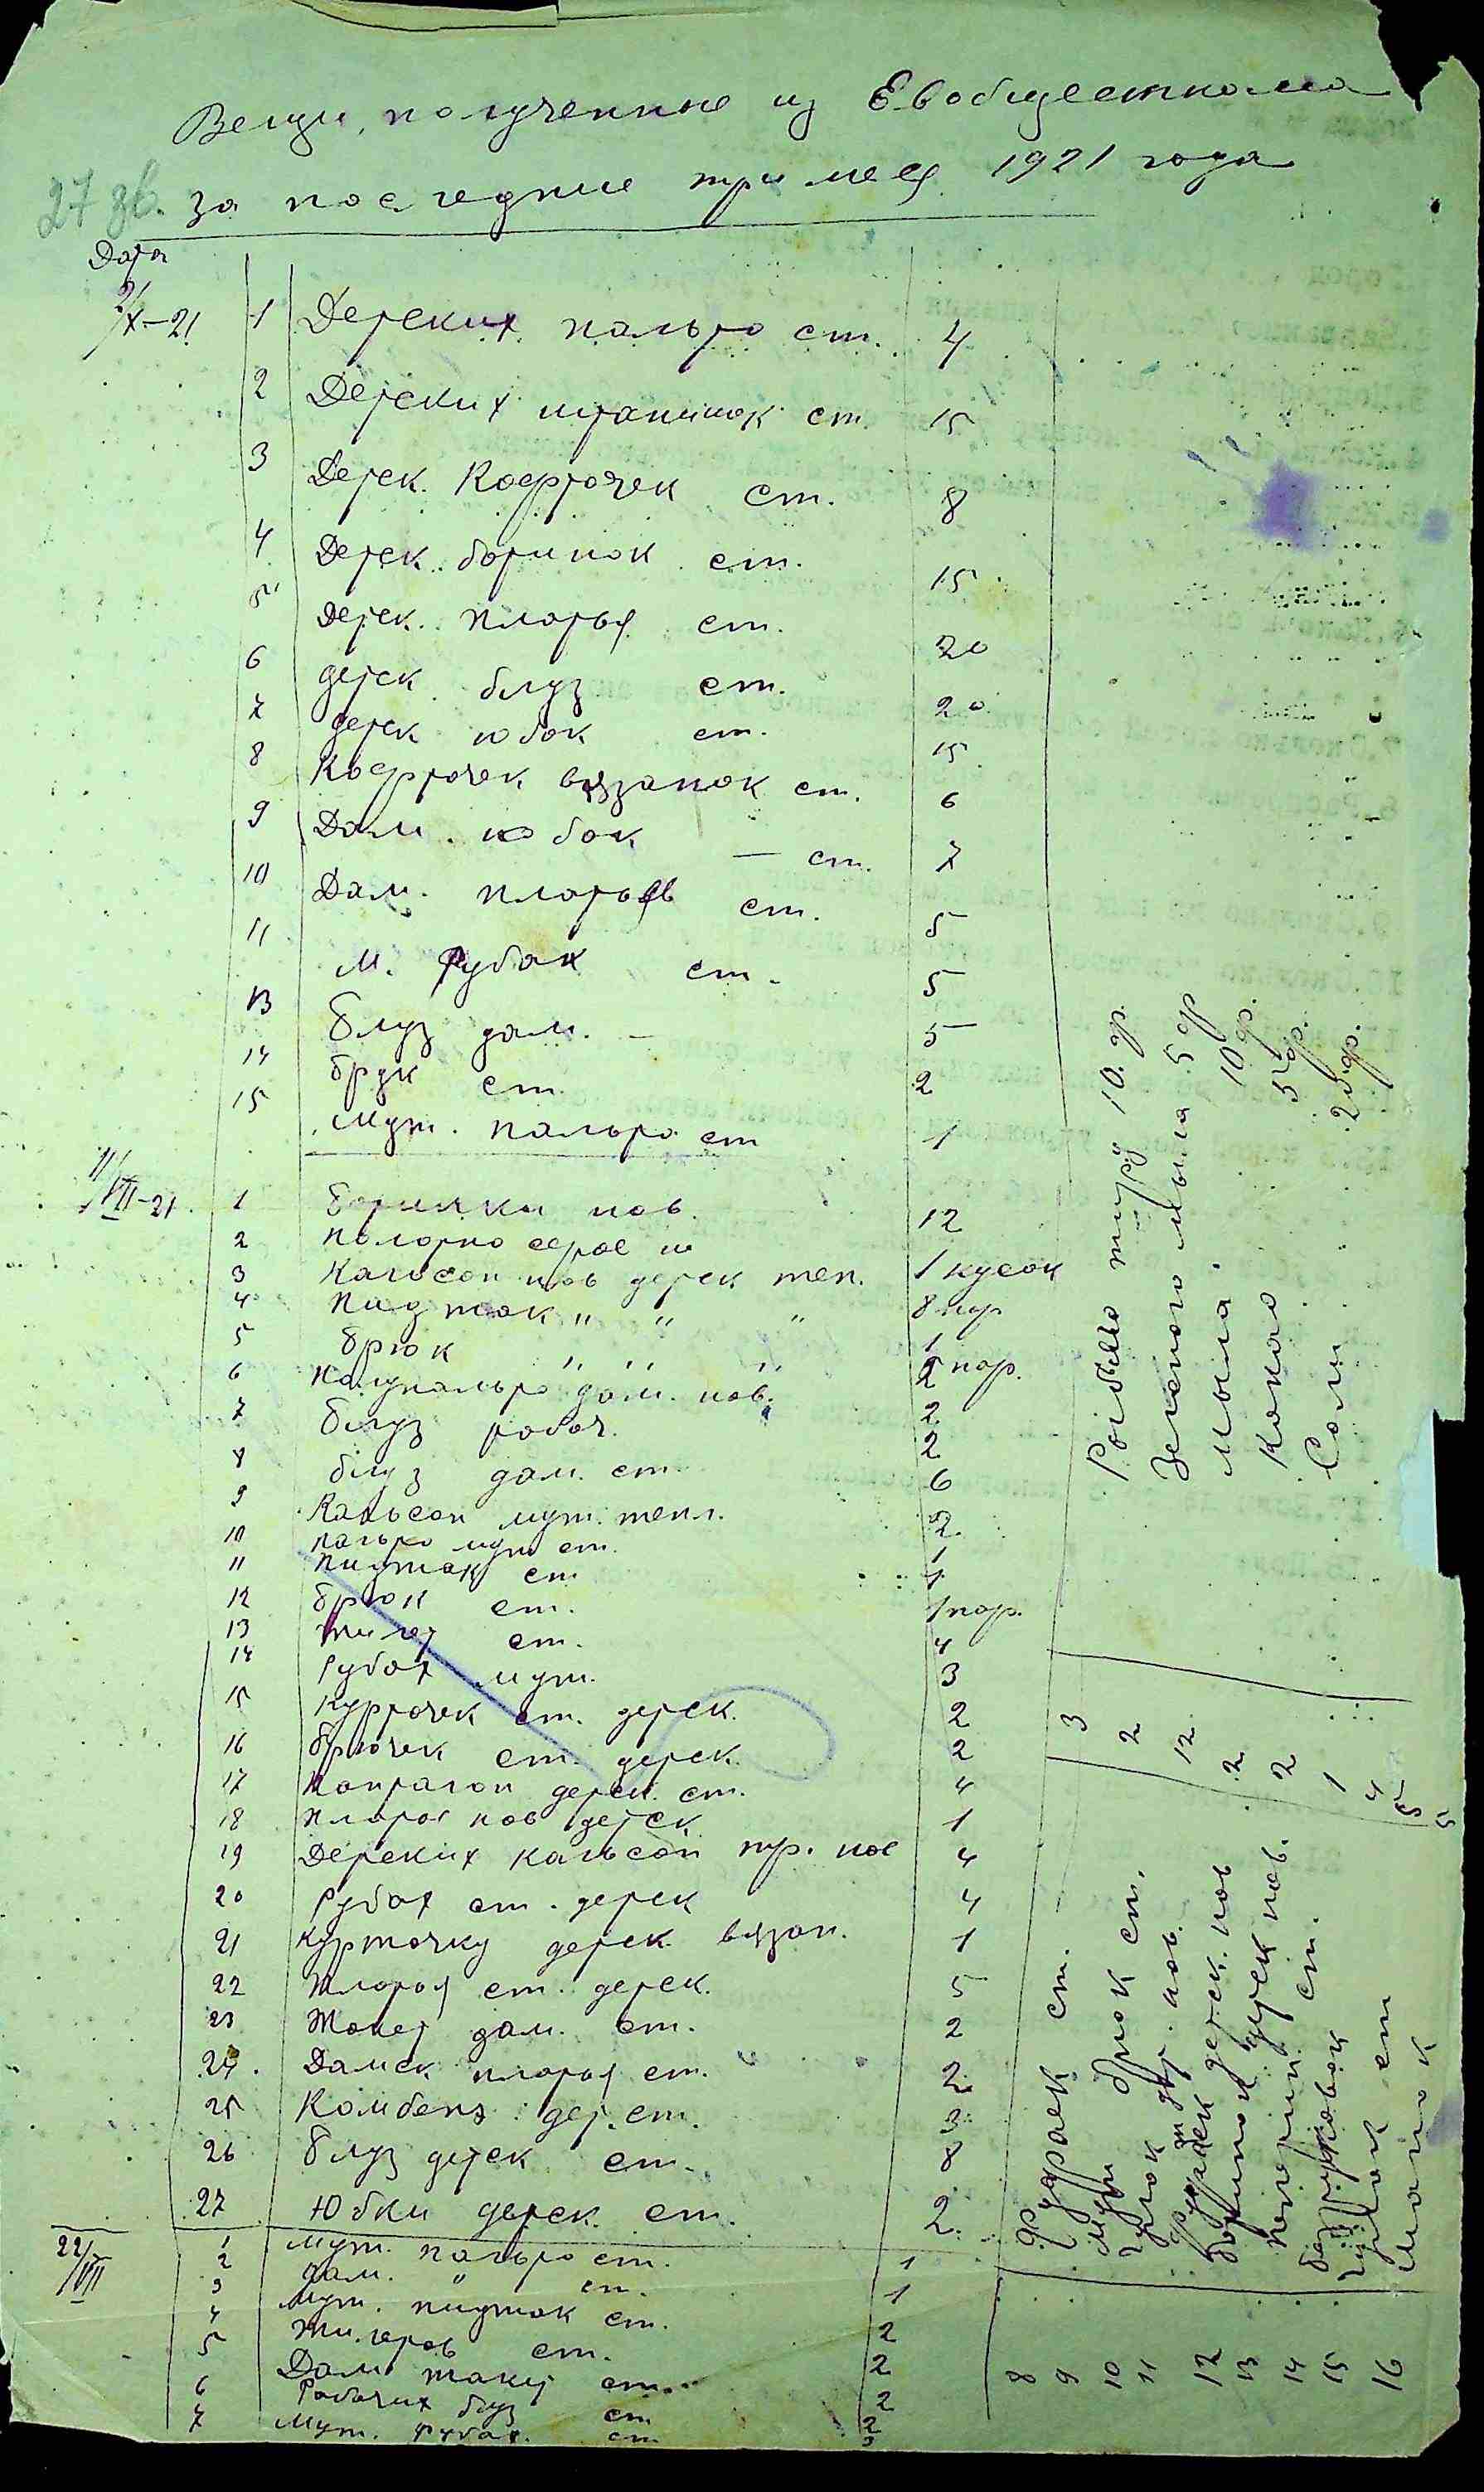 Вещи, полученные из Евобщесткома
27 зв. за последние три мес. 1921 года
Дата
2/X-21 1 Детских пальто ст. 4
2 Детских штанишок ст. 15
3 Детск. Кофточек ст. 8
4 Детск. ботинок ст. 15
5 Детск. платья ст. 20
6 детск блуз ст. 20
7 детск юбок ст. 15
8 Кофточек вязанок ст. 6
9 Дам. юбок — ст. 7
10 Дам. платьев ст. 5
11 М. Рубах ст. 5
13 блуз дам. — 5
14 брук ст. 2
15 Муж. пальто ст 1
11/XII-21 1 ботинки нов. 12
2 полотно серое 1 кусок
3 Кальсон нов детск теп. 8 пар
4 пиджак " " " 1
5 брюк " " " 2 пар.
6 полупальто дам. нов. 2
7 блуз рабоч. 2
8 блуз дам. ст. 6
9 Кальсон муж. тепл. 2
10 пальто муж ст. 1
11 пиджак ст 1
12 брюк ст. 1 пар.
13 жилет ст. 4
14 Рубах муж. 3
15 курточек ст. детск. 2
16 брючек ст. детск. 2
17 Контагон детск. ст. 4
18 платье нов детск 1
19 Детских кальсон пар. нов 4
20 Рубах ст. детск 4
21 курточку детск. вязан. 1
22 платья ст. детск. 5
23 Жакет дам. ст. 2
24. Дамск платья ст. 2
25 Комбенз. дет. ст. 3
26 блуз детск ст. 8
27 Юбки детск. ст. 2.
22/XII 1 Муж. пальто ст. 1
2 дам. " ст. 1
3 Муж. пиджак ст. 2
4 Жилетов ст. 2
5 Дам жакет ст. 2
6 Рабочих блуз ст 2
7 Муж. Рубах. ст
Рыбьего жиру 10. ф.
Зеленого мыла 5 ф
Мыла. 10 ф.
Какао 5 ф.
Соли 25 ф.
8 ст. 3
9 Муж брюк ст. 2
10 чулок нов. 12
11 детск. нов 2
12 ботинок детск нов. 2
13 ст. 1
14 4
15 ст 5
16 5